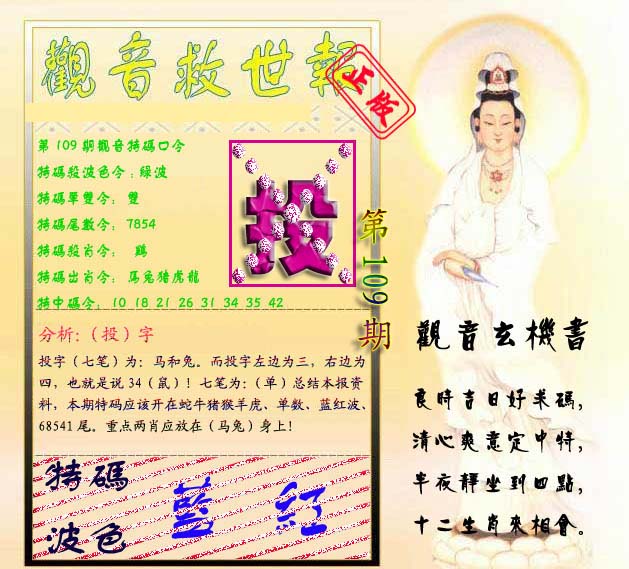 觀音救世報
正版
第109期觀音特碼口令
特碼殺波色令:綠波
特碼單雙令: 雙
特碼尾數令: 7854
特碼殺肖令: 鷄
特碼出肖令: 馬兔猪虎龍
特中碼令: 10 18 21 26 31 34 35 42
投
第109期
分析:（投）字
投字（七笔）为：马和兔。而投字左边为三，右边为
四，也就是说34（鼠）！七笔为：（单）总结本报资
料，本期特码应该开在蛇牛猪猴羊虎、单数、蓝红波、
68541尾。重点两肖应放在（马兔）身上！
特碼
波色
藍 紅
觀音玄機書
良時吉日好来碼，
清心爽意定中特，
半夜靜坐到四點，
十二生肖來相會。